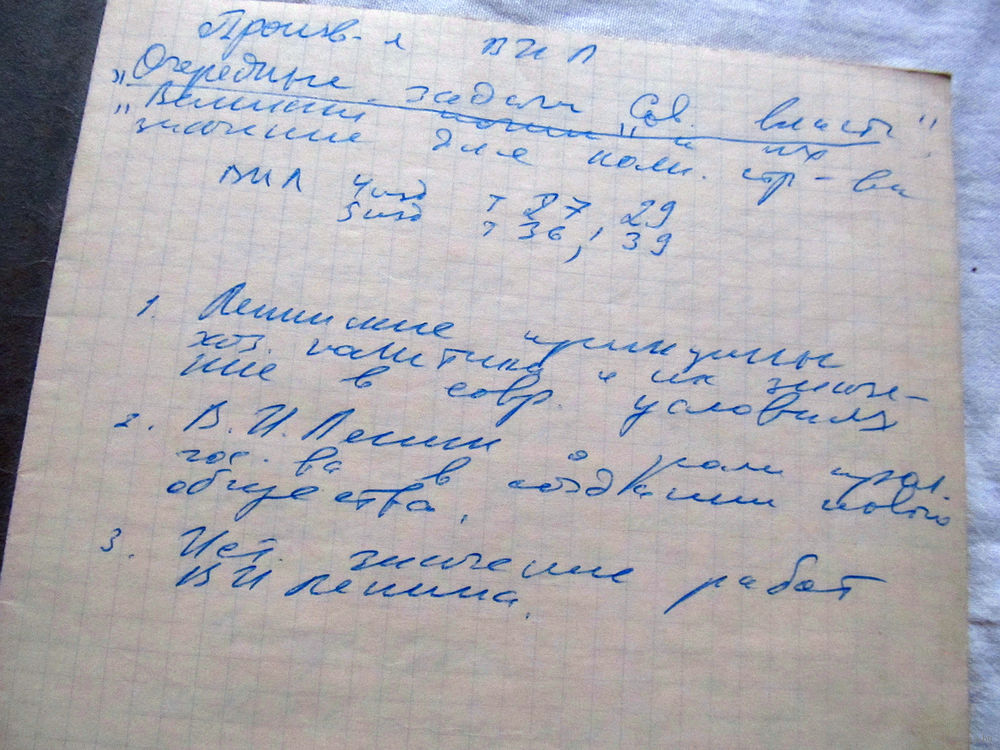 Произв-я ВИЛ
„Очередные задачи Сов. власти"
„Великий почин" и их
значение для ком. стр-ва
ВИЛ 4 изд т 27, 29
5 изд т 36, 39
1. Ленинские принципы
хоз. политики и их значе-
ние в совр. условиях
2. В.И. Ленин о роли прол.
гос-ва в создании нового
общества.
3. Ист. значение работ
ВИ Ленина.